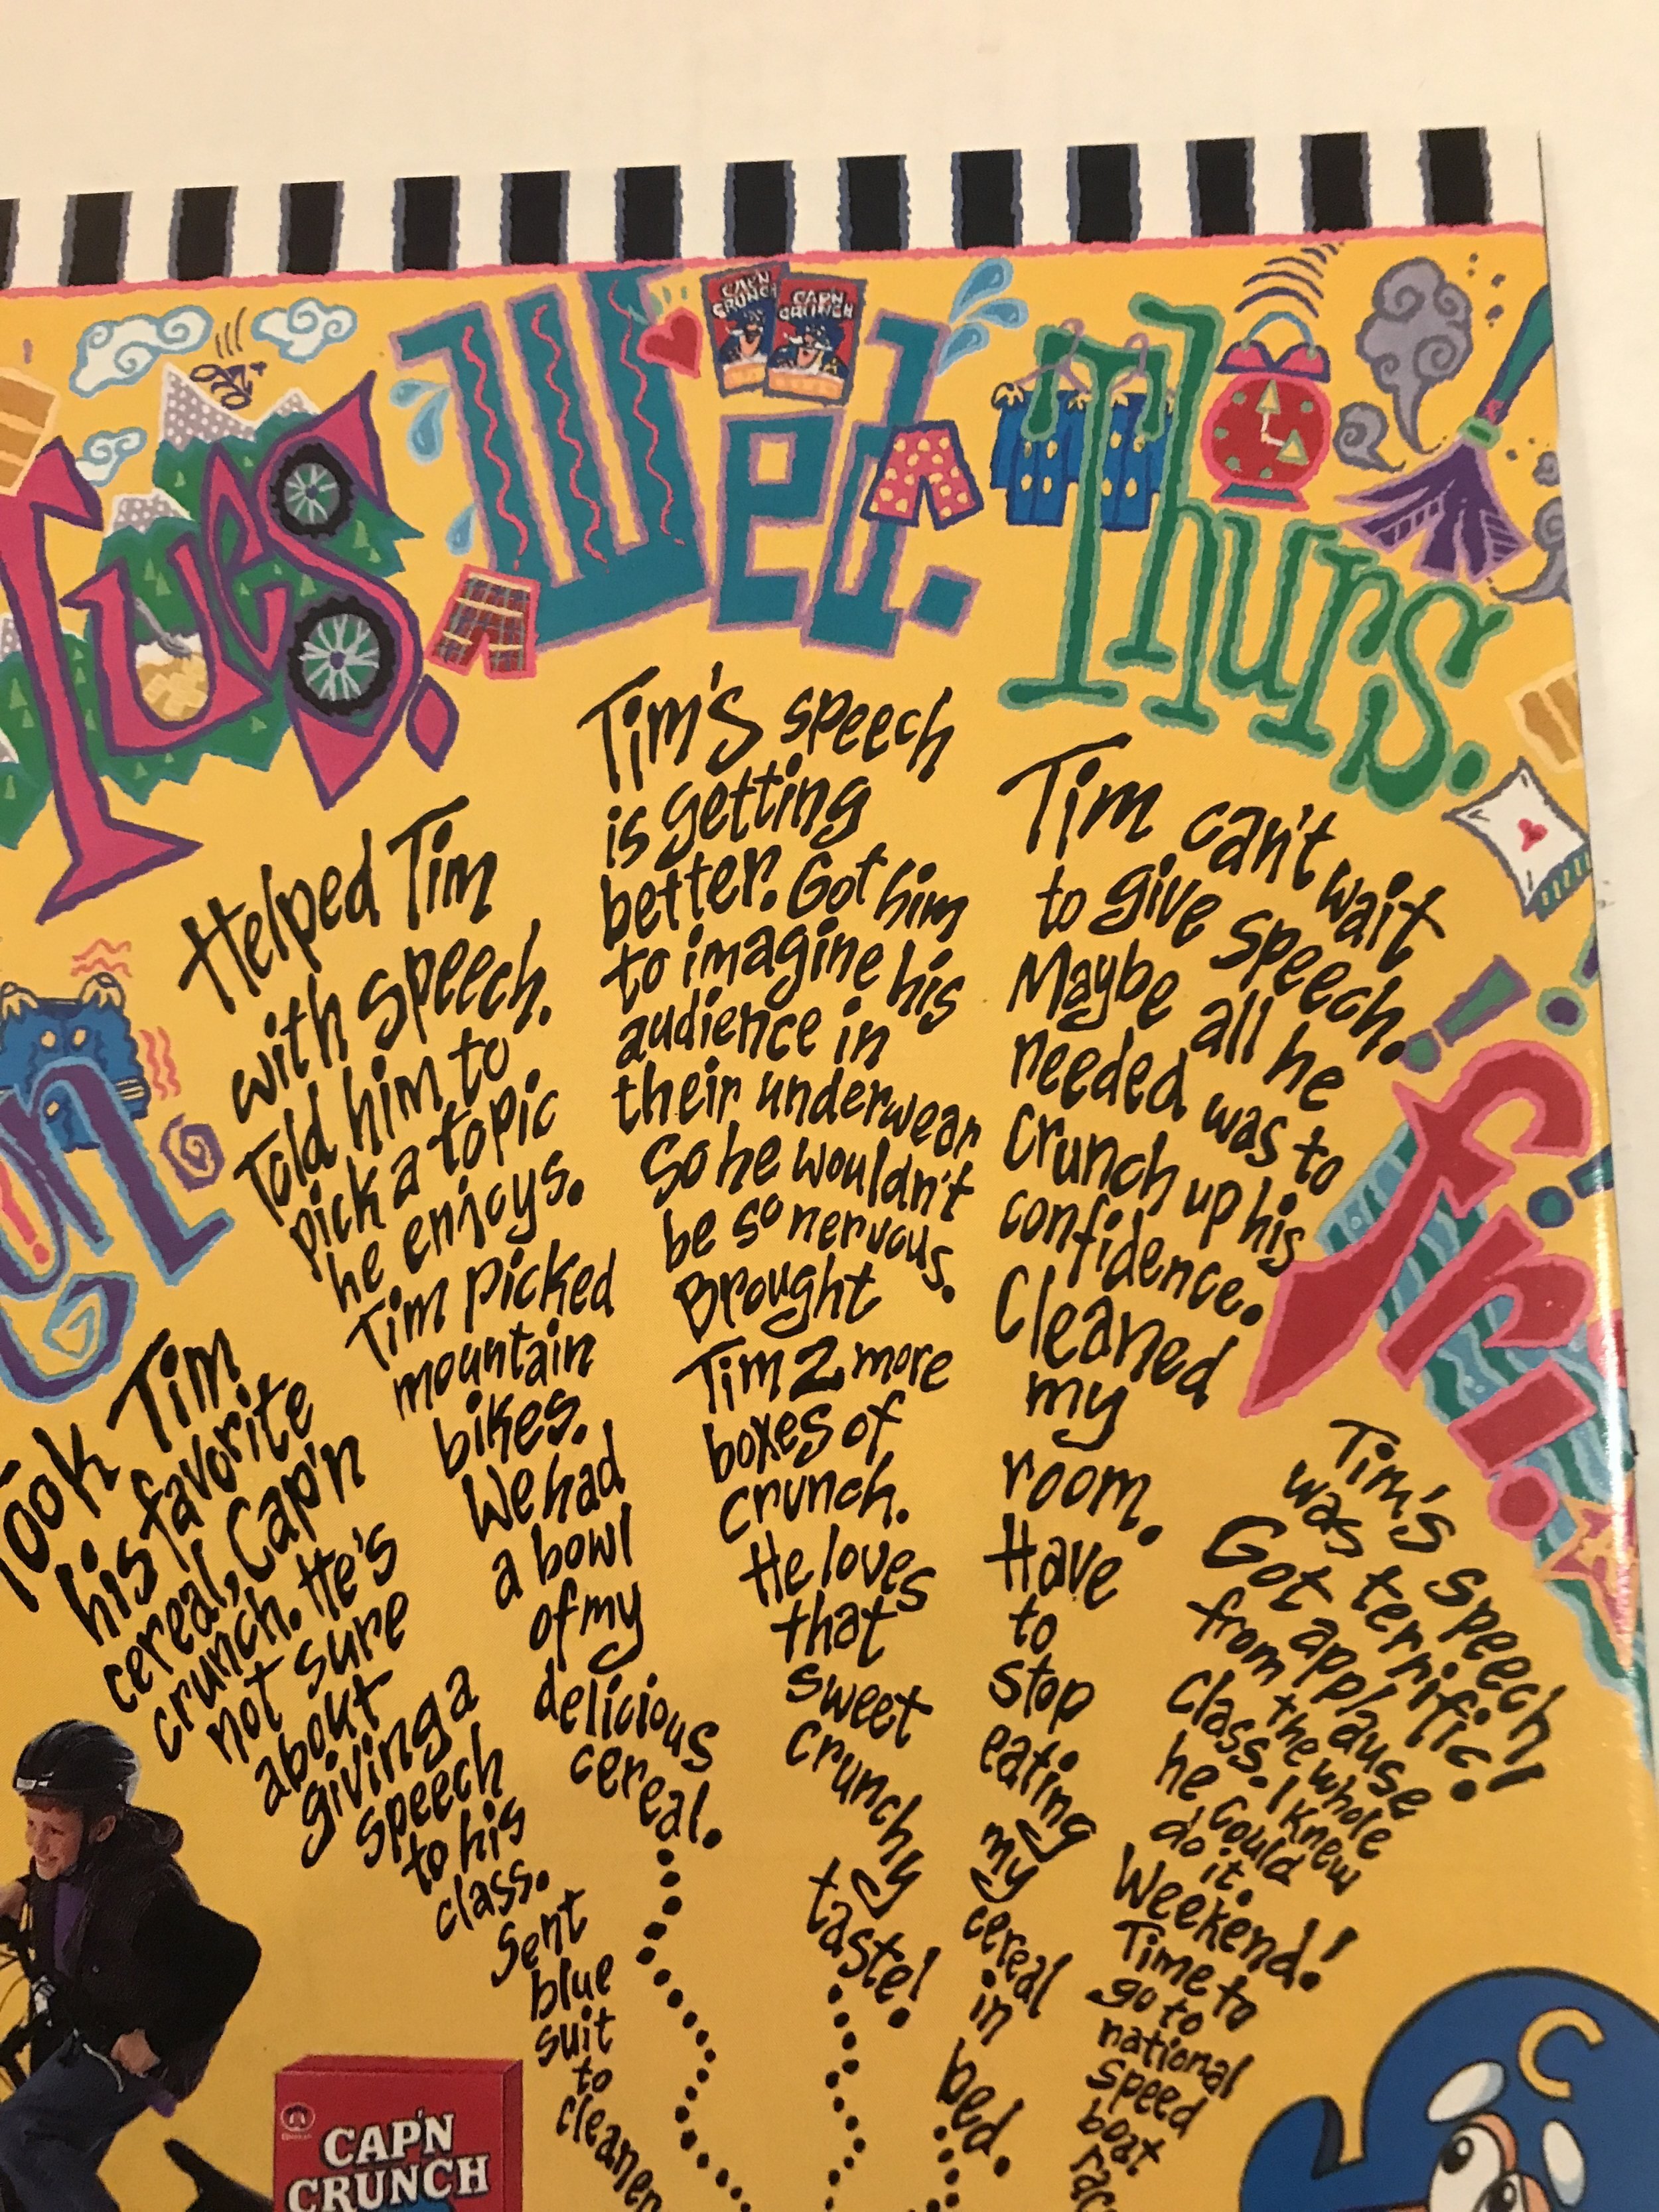 on.
Took Tim
his favorite
cereal, Cap'n
crunch. He's
not sure
about
giving a
speech
to his
class.
Sent
blue
suit
to
cleaner
Tues.
Helped Tim
with speech.
Told him to
pick a topic
he enjoys.
Tim picked
mountain
bikes.
We had
a bowl
of my
delicious
cereal.
Wed.
CAP'N
CRUNCH
CAP'N
CRUNCH
Tim's speech
is getting
better. Got him
to imagine his
audience in
their underwear
So he wouldn't
be so nervous.
Brought
Tim 2 more
boxes of
crunch.
He loves
that
sweet
crunchy
taste!
Thurs.
Tim can't wait
to give speech.
Maybe all he
needed was to
crunch up his
confidence.
Cleaned
my
room.
Have
to
stop
eating
my
cereal
in
bed.
fri.
Tim's speech
was terrific!
Got applause
from the whole
class. I knew
he could
do it.
Weekend!
Time to
go to
national
speed
boat
rac
CAP'N
CRUNCH
C